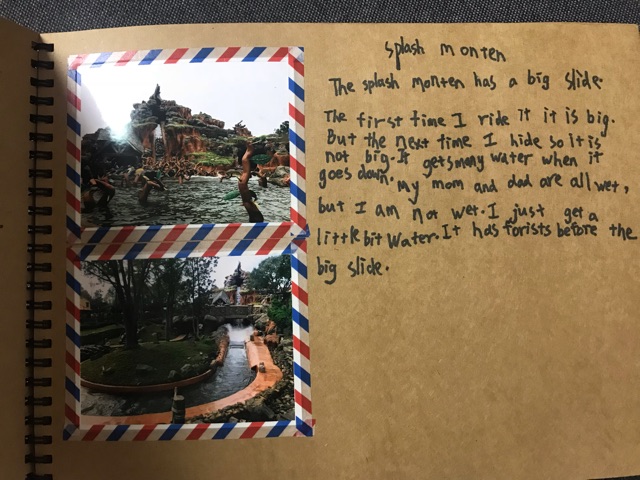 splash monten
The splash monten has a big slide.
The first time I ride it it is big.
But the next time I hide so it is
not big. It gets many water when it
goes down. my mom and dad are all wet,
but I am not wet. I just get a
little bit water. It has forists before the
big slide.